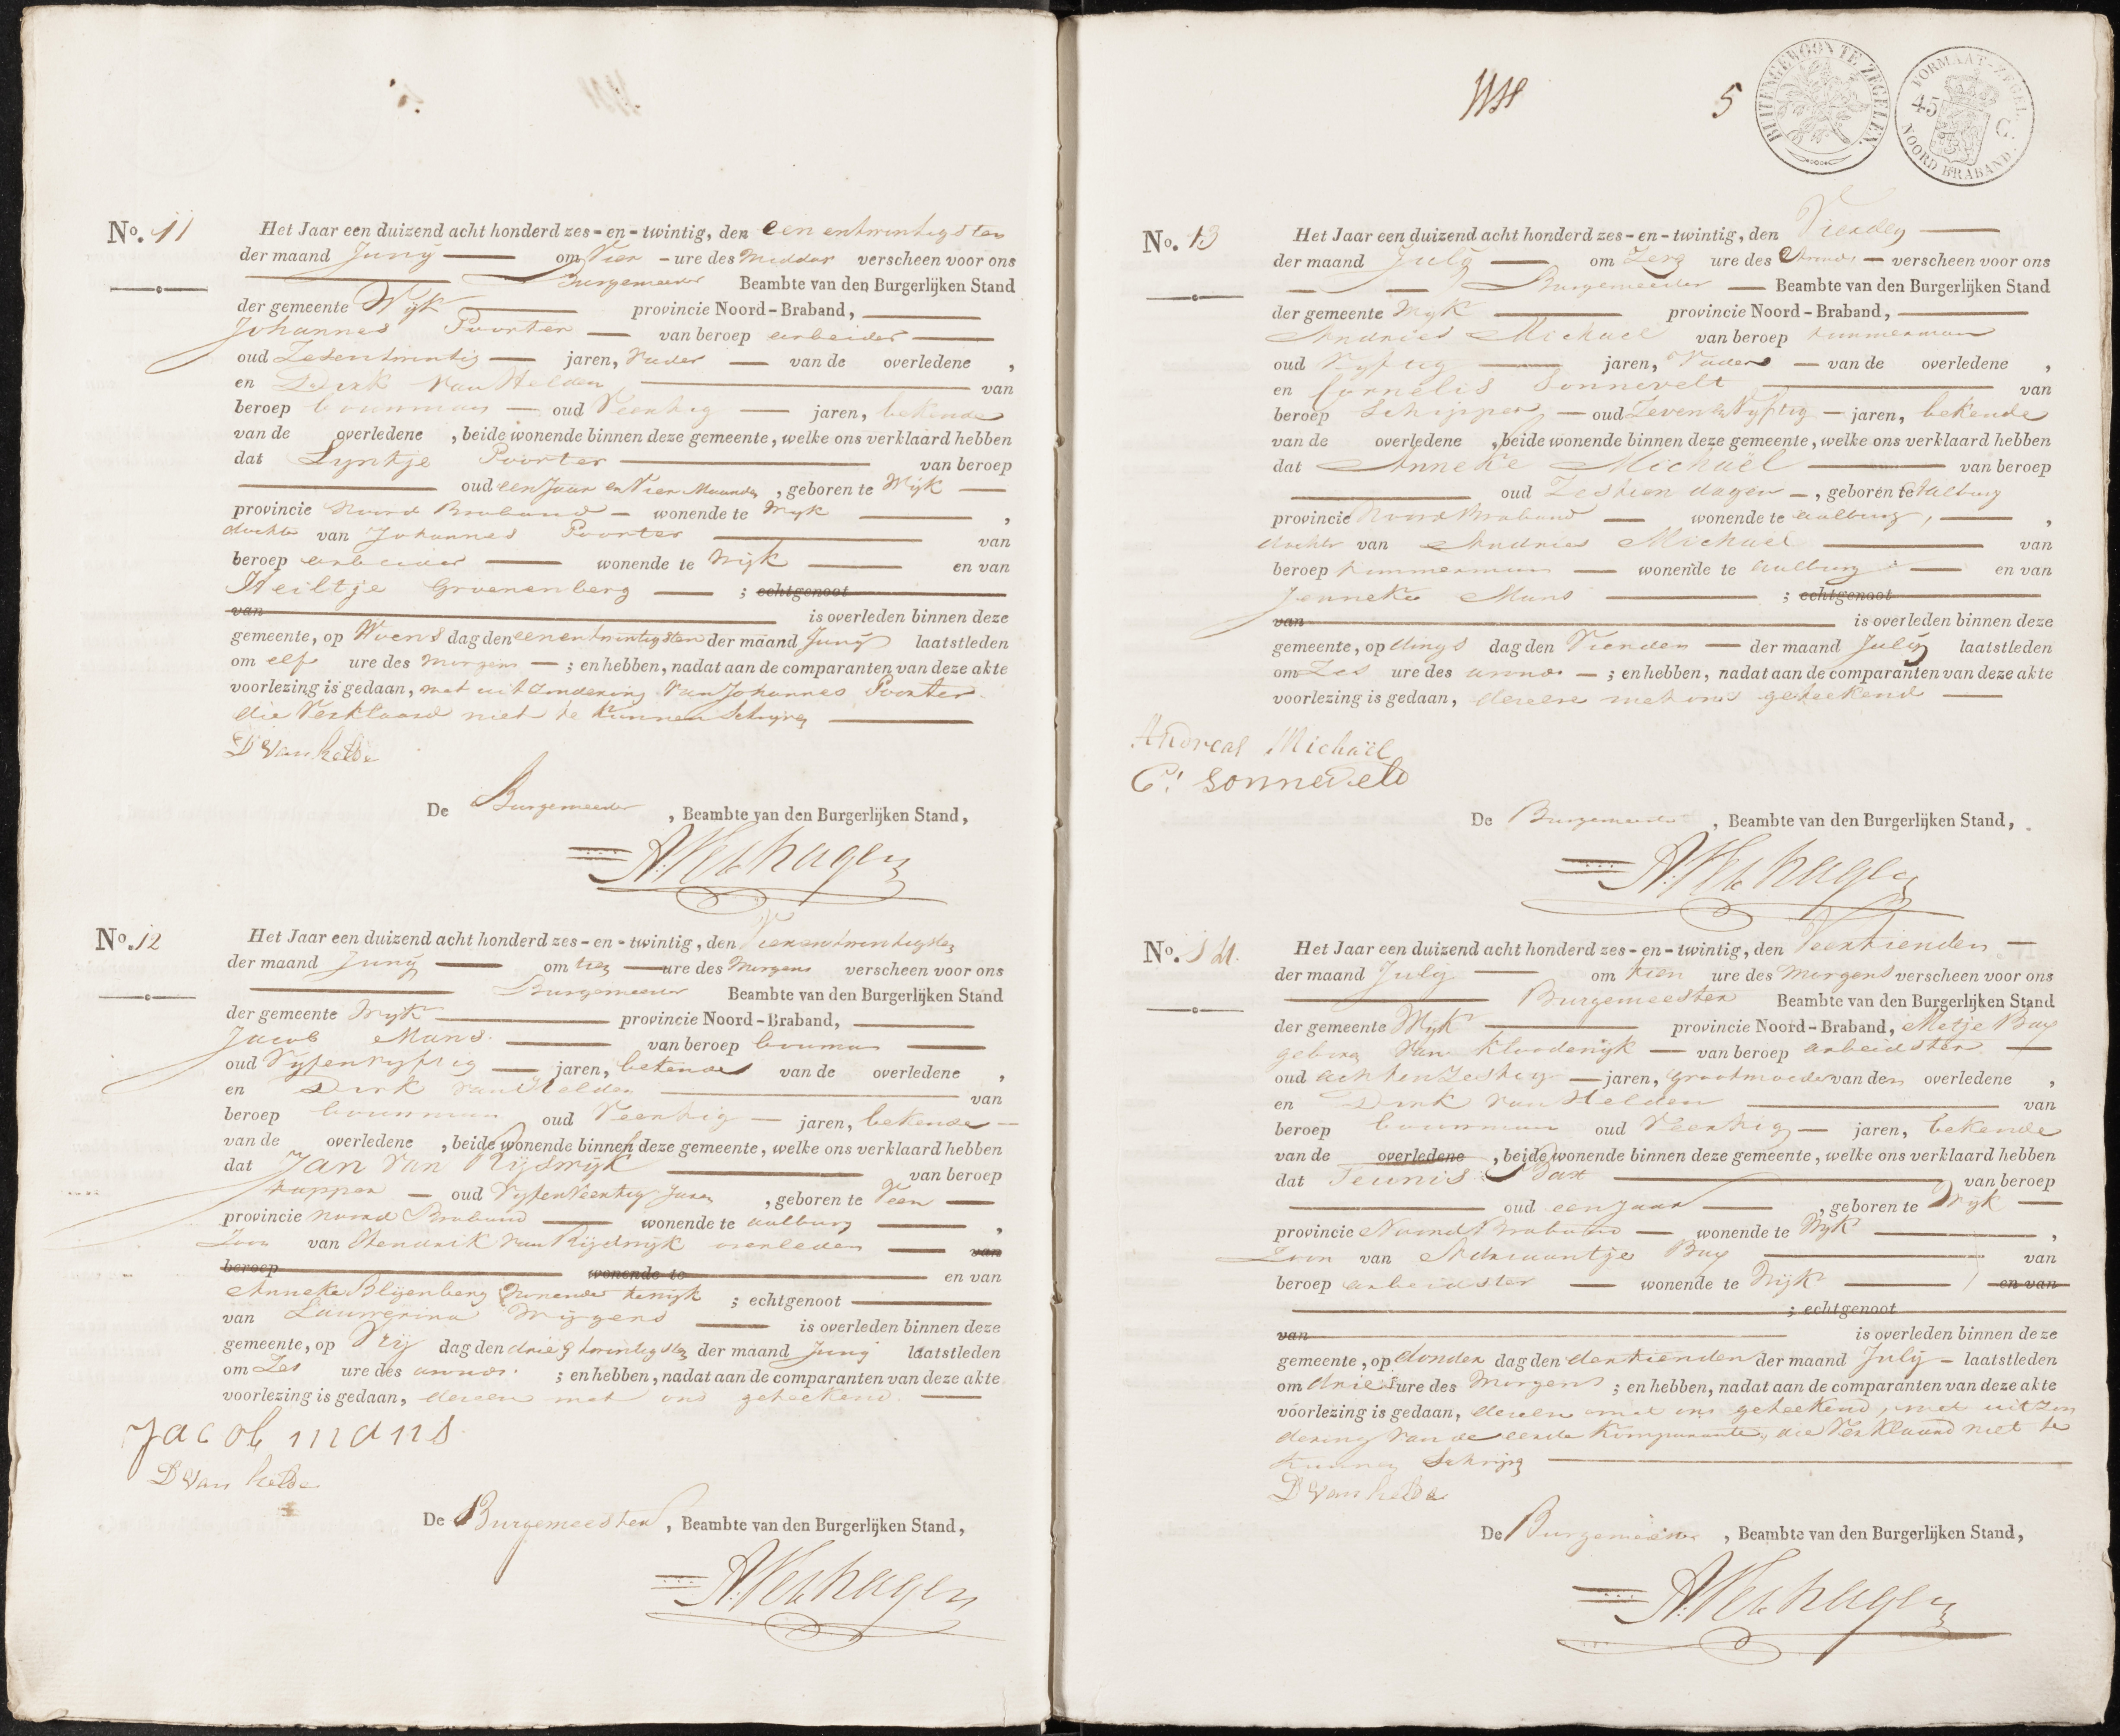 No. 11
Het Jaar een duizend acht honderd zes-en-twintig, den een entwintigsten
der maand Juny om Vier ure des Middar verscheen voor ons
Burgemeester Beambte van den Burgerlijken Stand
der gemeente Wyk provincie Noord-Braband,
Johannes Poorter van beroep arbeider
oud Zesentwintig jaren, Vader van de overledene ,
en Dirk van Helden van
beroep bouwman oud Veertig jaren, bekende
van de overledene , beide wonende binnen deze gemeente, welke ons verklaard hebben
dat Lyntje Poorter van beroep
oud een Jaar en Vier Maanden , geboren te Wijk
provincie Noord Braband wonende te Wyk ,
dochter van Johannes Poorter van
beroep arbeider wonende te Wijk en van
Heiltje Groenenberg ; echtgenoot
van is overleden binnen deze
gemeente, op Woens dag den eenentwintigsten der maand Juny laatstleden
om elf ure des morgens ; en hebben, nadat aan de comparanten van deze akte
voorlezing is gedaan, met uitzondering van Johannes Poorter
die Verklaard niet te kunnen Schryven
D van helde
De Burgemeester , Beambte van den Burgerlijken Stand,
A Verhagen
No. 12
Het Jaar een duizend acht honderd zes-en-twintig, den Vierentwintigsten
der maand Juny om tien ure des Morgens verscheen voor ons
Burgemeester Beambte van den Burgerlijken Stand
der gemeente Wyk provincie Noord-Braband,
Jacob Mans van beroep bouman
oud Vyfenvyftig jaren, bekende van de overledene ,
en Dirk van Helden van
beroep bouwman oud Veertig jaren, bekende
van de overledene , beide wonende binnen deze gemeente, welke ons verklaard hebben
dat Jan Van Rijswijk van beroep
tapper oud Vyfenveertig Jaren , geboren te Veen
provincie Noord Braband wonende te aalburg ,
Zoon van Hendrik van Rijswijk overleden van
beroep wonende te en van
Anneke Blijenberg Wonende te Wyk ; echtgenoot
van Lauwerina is overleden binnen deze
gemeente, op Vrij dag den drie & twintigsten der maand Juny laatstleden
om Zes ure des avonds ; en hebben, nadat aan de comparanten van deze akte
voorlezing is gedaan, dezen met ons geteekend
Jacob mans
D van helde
De Burgemeester , Beambte van den Burgerlijken Stand,
A Verhagen
5
BUITENGEWOON TE ZEGELEN.
FORMAAT-ZEGEL
45 C.
NOORD BRABAND.
No. 13
Het Jaar een duizend acht honderd zes-en-twintig, den Vierden
der maand July om Zeven ure des Avonds verscheen voor ons
Burgemeester Beambte van den Burgerlijken Stand
der gemeente Wyk provincie Noord-Braband,
Andries Michael van beroep timmerman
oud Vyftig jaren, Vader van de overledene ,
en Cornelis Sonnevelt van
beroep Schipper oud Zeven & Vyftig jaren, bekende
van de overledene , beide wonende binnen deze gemeente, welke ons verklaard hebben
dat Anneke Michaël van beroep
oud Zestien dagen , geboren te Aalburg
provincie Noord Braband wonende te aalburg, ,
dochter van Andries Michael van
beroep timmerman wonende te aalburg en van
Jenneke Mans ; echtgenoot
van is overleden binnen deze
gemeente, op dings dag den Vierden der maand July laatstleden
om Zes ure des avonds ; en hebben, nadat aan de comparanten van deze akte
voorlezing is gedaan, dezen met ons geteekend
Andreas Michaël
C: Sonneveld
De Burgemeester , Beambte van den Burgerlijken Stand,
A Verhagen
No. 14.
Het Jaar een duizend acht honderd zes-en-twintig, den Veertienden
der maand July om tien ure des Morgens verscheen voor ons
Burgemeester Beambte van den Burgerlijken Stand
der gemeente Wyk provincie Noord-Braband, Metje Bax
geboren van van beroep arbeidster
oud acht en Zestig jaren, grootmoeder van den overledene ,
en Dirk van Helden van
beroep bouwman oud Veertig jaren, bekende
van de overledene , beide wonende binnen deze gemeente, welke ons verklaard hebben
dat Teunis Bax van beroep
oud een Jaar , geboren te Wyk
provincie Noord Braband wonende te Wyk ,
Zoon van Adriaantje Bax van
beroep arbeidster wonende te Wijk en van
; echtgenoot
van is overleden binnen deze
gemeente, op donder dag den dertienden der maand July laatstleden
om drie ure des Morgens ; en hebben, nadat aan de comparanten van deze akte
voorlezing is gedaan, dezen met ons geteekend, met uitzon
dering van de eerste Komparante, die Verklaard niet te
kunnen Schrijven
D van helde
De Burgemeester , Beambte van den Burgerlijken Stand,
A Verhagen